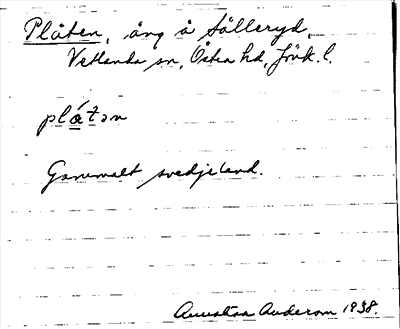 Plåten, äng å Sälleryd,
Vetlanda sn, Östra hd, Jönk. l.
plá̱tən
Gammalt svedjeland.
Anderson 1938.